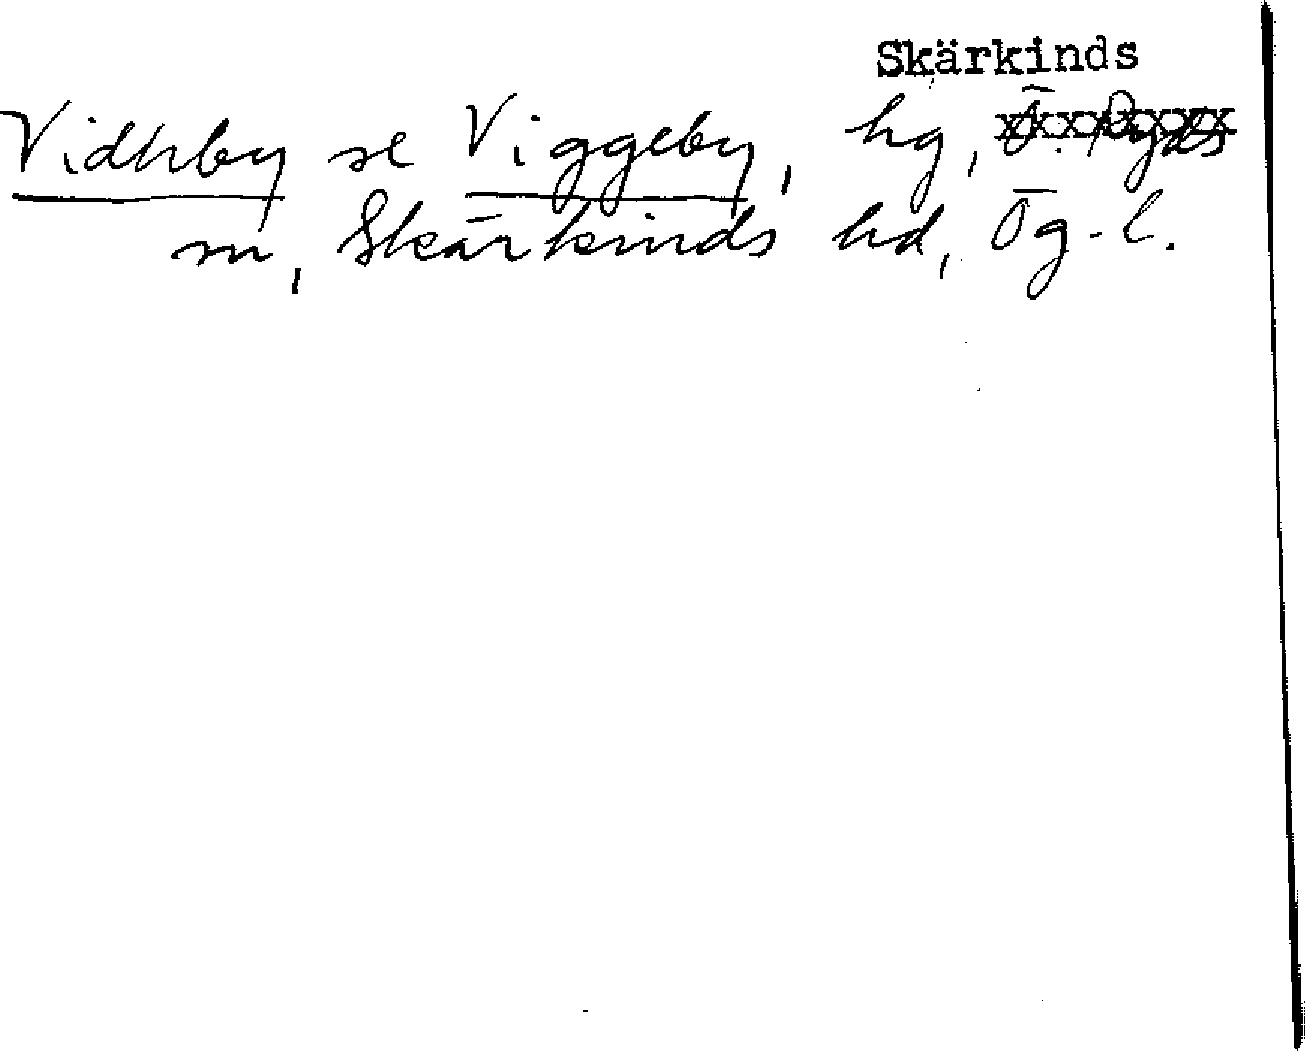 Skärkinds
Vidhby se Viggeby, hg, Ö. Ryds
sn, Skärkinds hd, Ög. l.